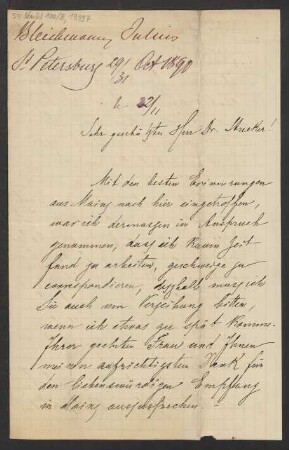 Bleichmann, Julius
St Petersburg 29/31 Oct 1890
22/11
Sehr geehrtester Herr Dr. Strecker!
Mit den besten Erinnerungen
aus Mainz nach hier eingetroffen,
war ich dermassen in Anspruch
genommen, dass ich kaum Zeit
fand zu arbeiten, geschweige zu
correspondieren, desshalb muss ich
Sie auch um Verzeihung bitten,
wenn ich etwas zu spät komme
Ihrer geehrten Frau und Ihnen
meinen aufrichtigsten Dank für
den liebenswürdigen Empfang
in Mainz auszusprechen.